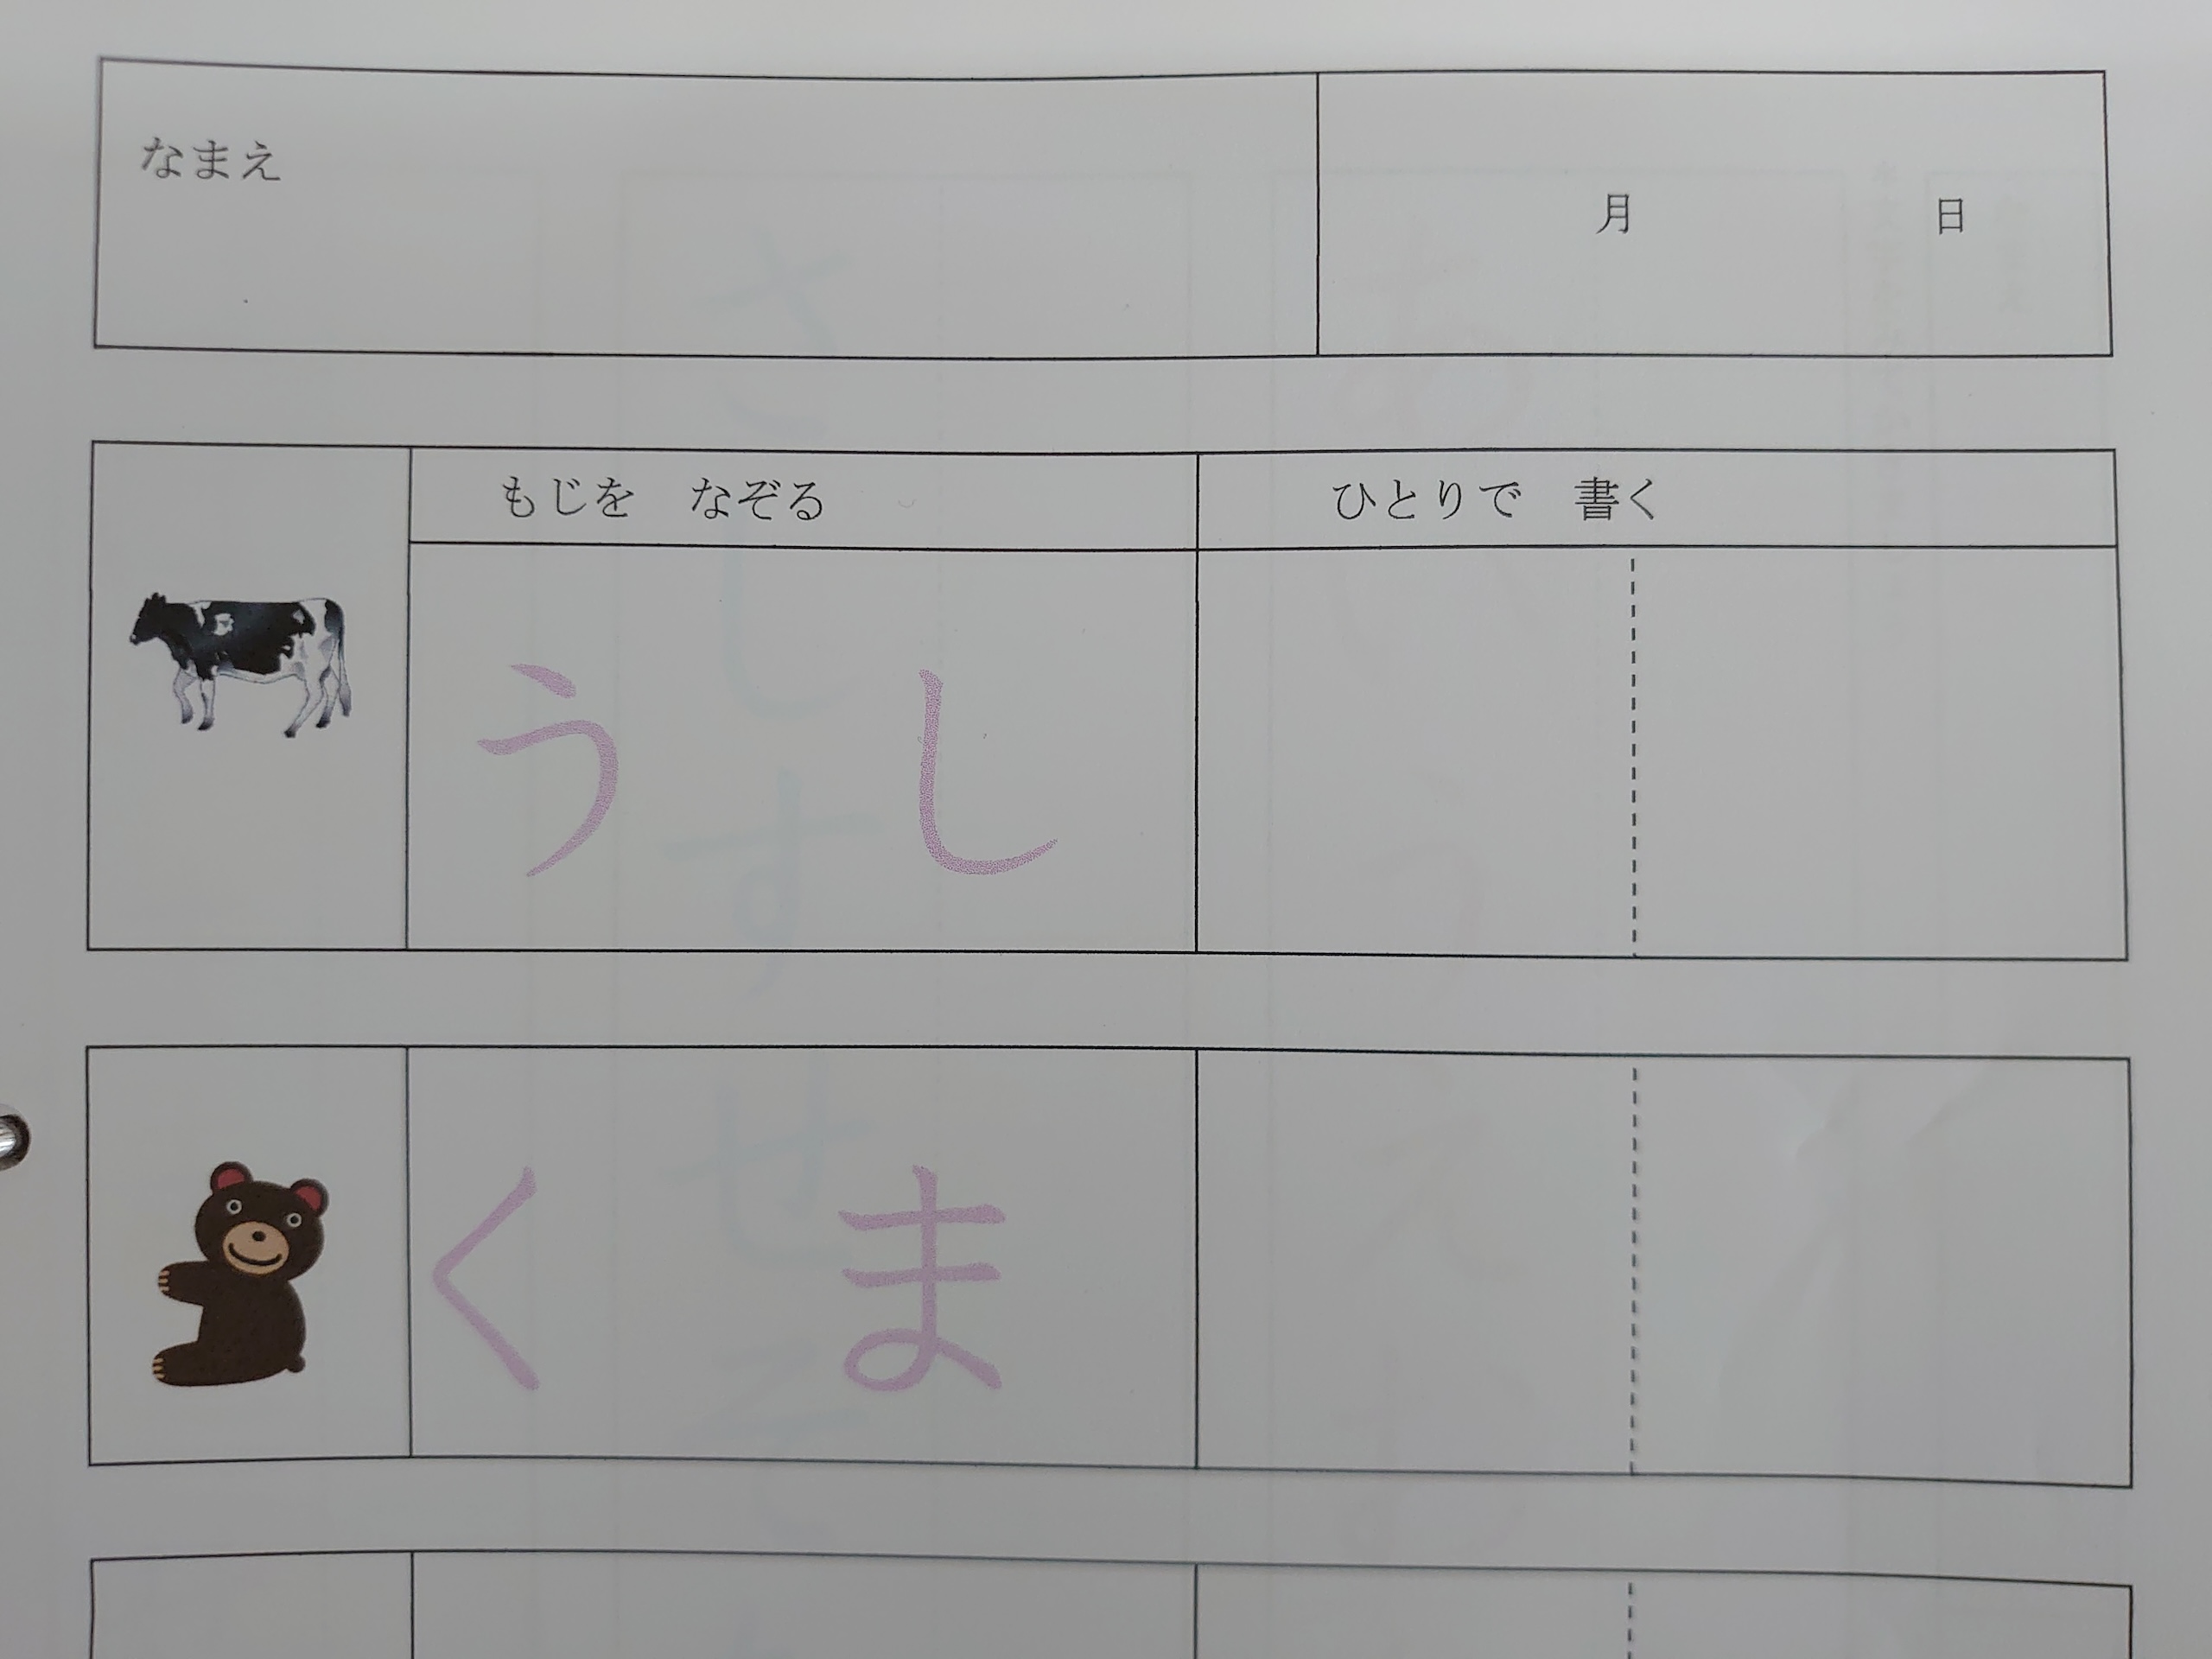 なまえ
月 日
もじを なぞる ひとりで 書く
う し
く ま